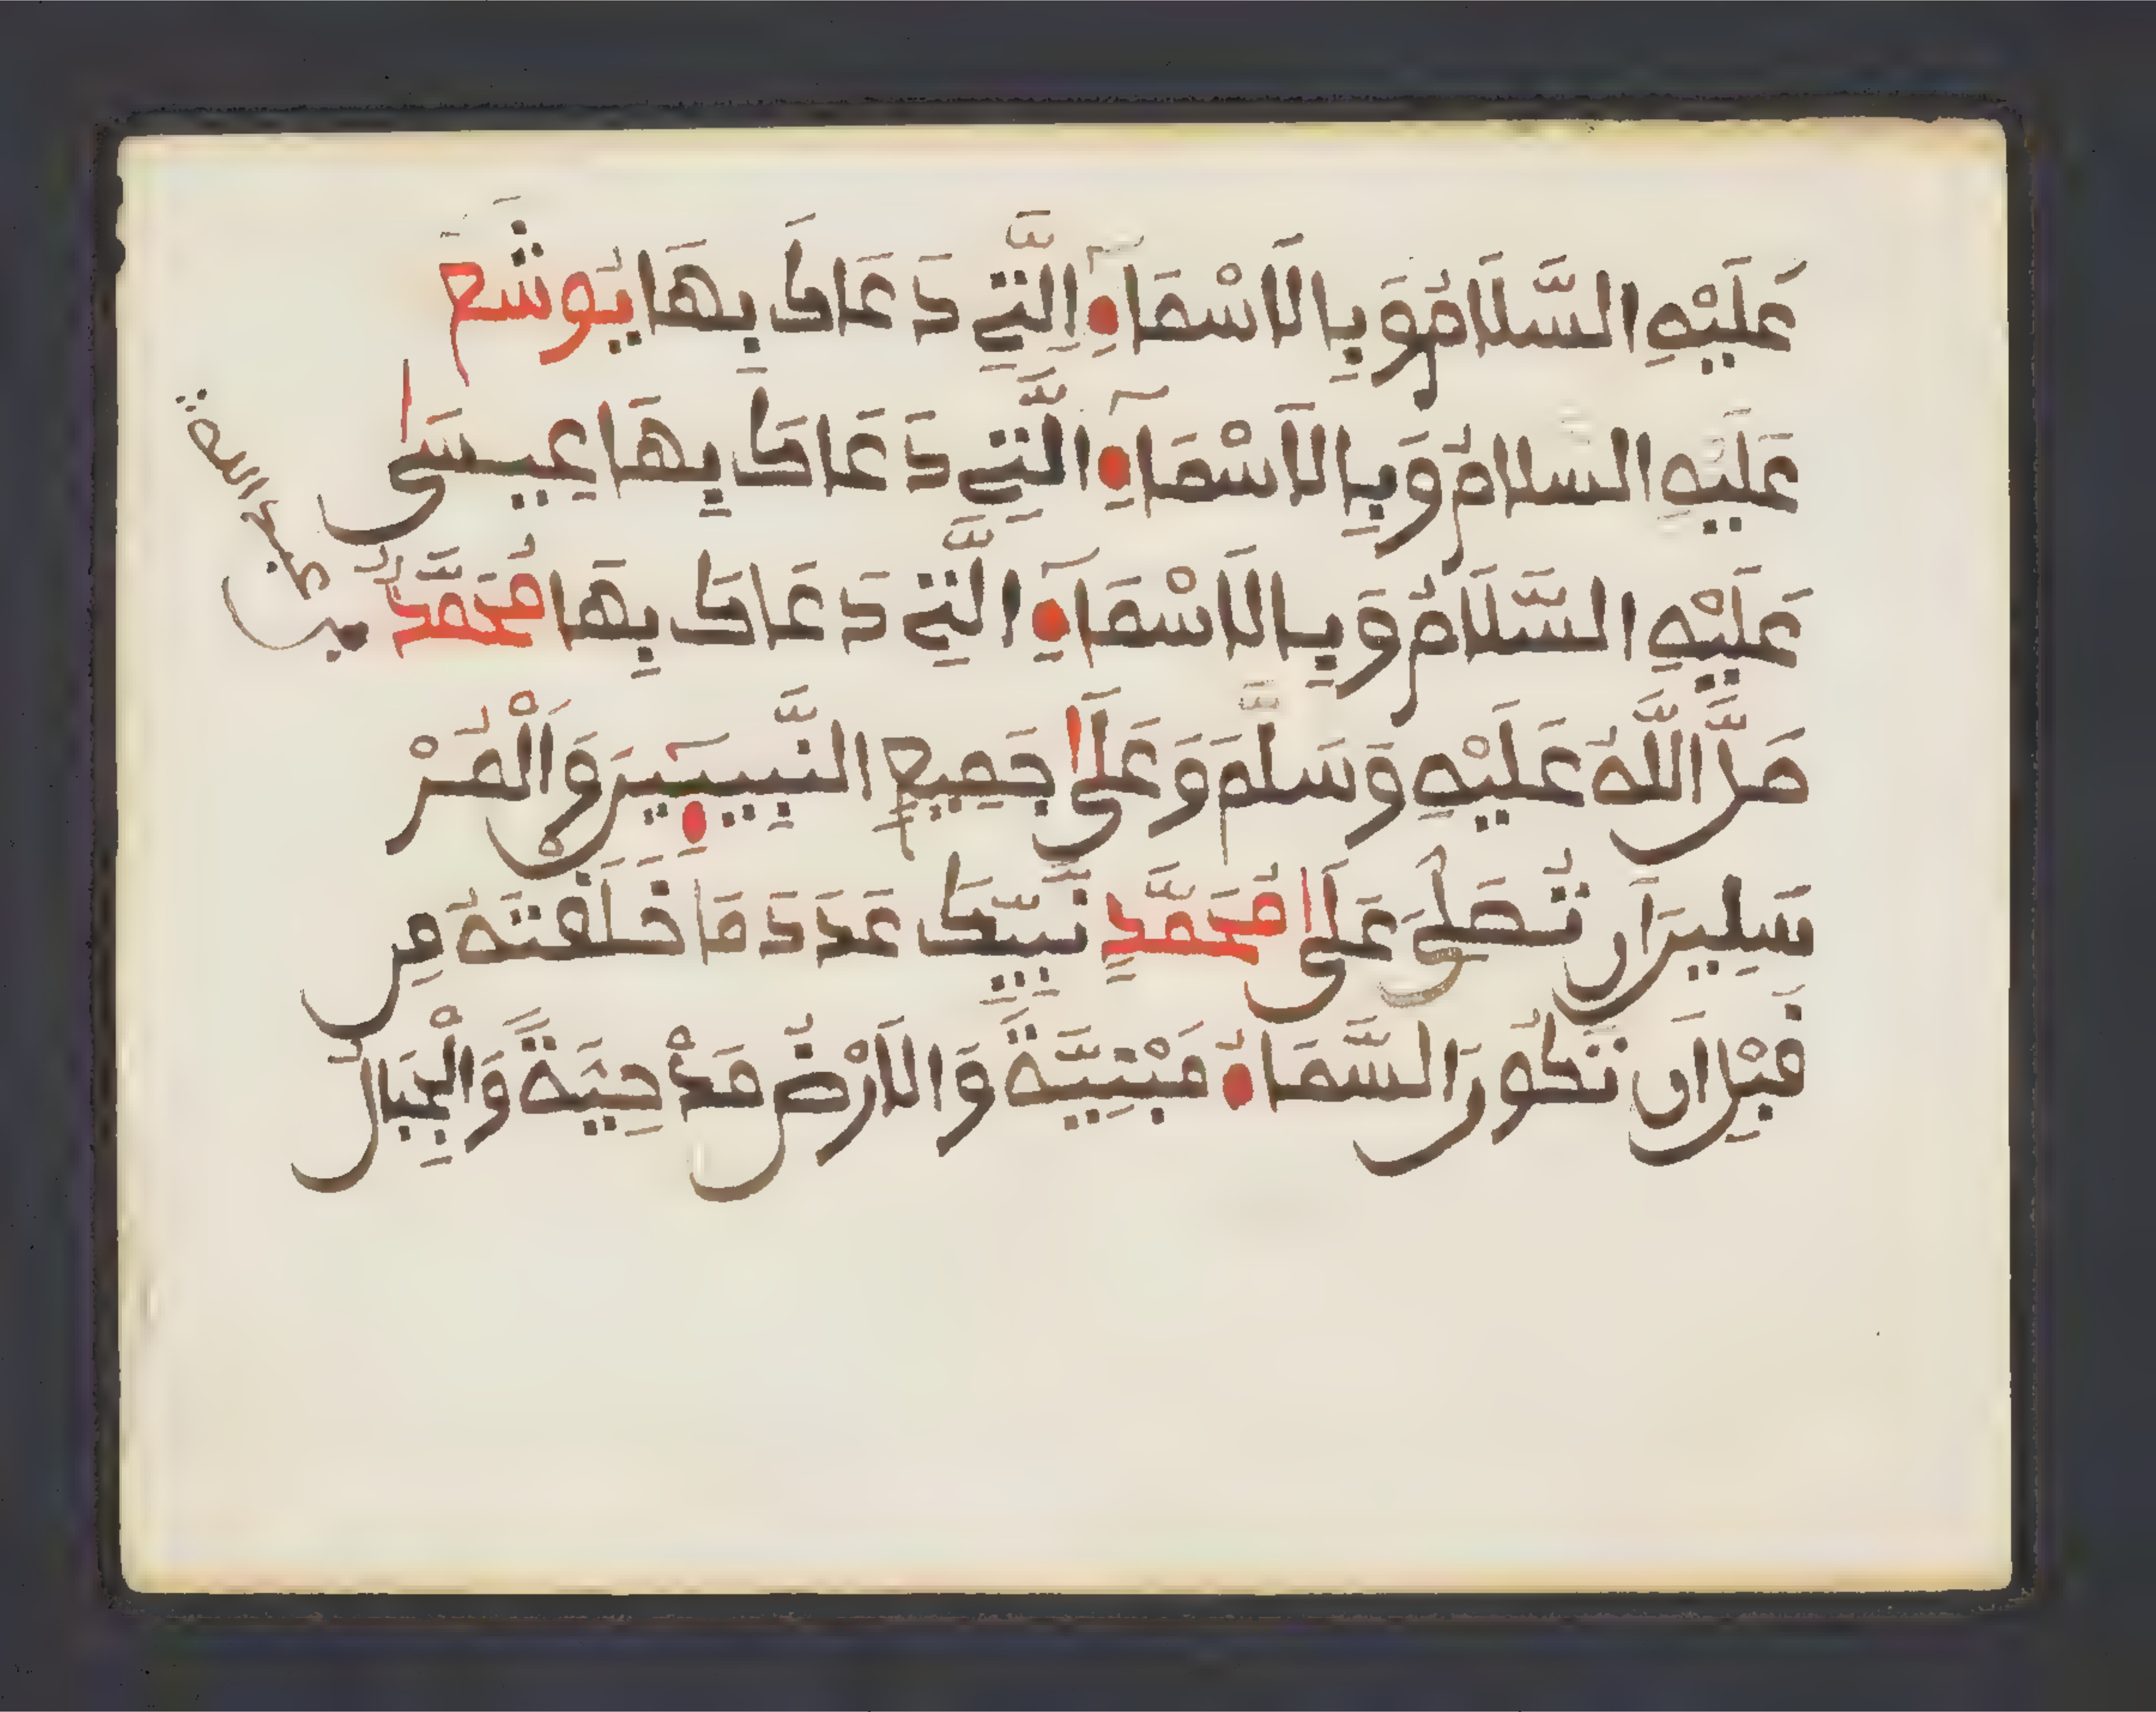 عَلَيْهِ السَّلَامُ وَبِالَاسْمَآءِ اِلَّتِے دَعَاكَ بِهَا يُوشَعَ
عَلَيْهِ السلامُ وَبِالَاسْمَآءِ الَّتِے دَعَاكَ بِهَا عِيسَىٰ
عَلَيْهِ السَّلَامُ وَبِالَاسْمَآءِ الَّتِے دَعَاكَ بِهَا مُحَمَّدٌ
صَلَّ اللَّهُ عَلَيْهِ وَسَلَّمَ وَعَلَىٰ جَمِيعِ النَّبِيـِٕينَ وَالْمُرْ
سَلِينَ أَن تُصَلِّيَ عَلَىٰ مُحَمَّدٍ نَبِيِّكَ عَدَدَ مَا خَلَقْتَهُ مِن
قَبْلِ أَن تَكُونَ السَّمَاءُ مَبْنِيَّةً وَالَارْضُ مَدْحِيَةً وَالْجِبَالُ